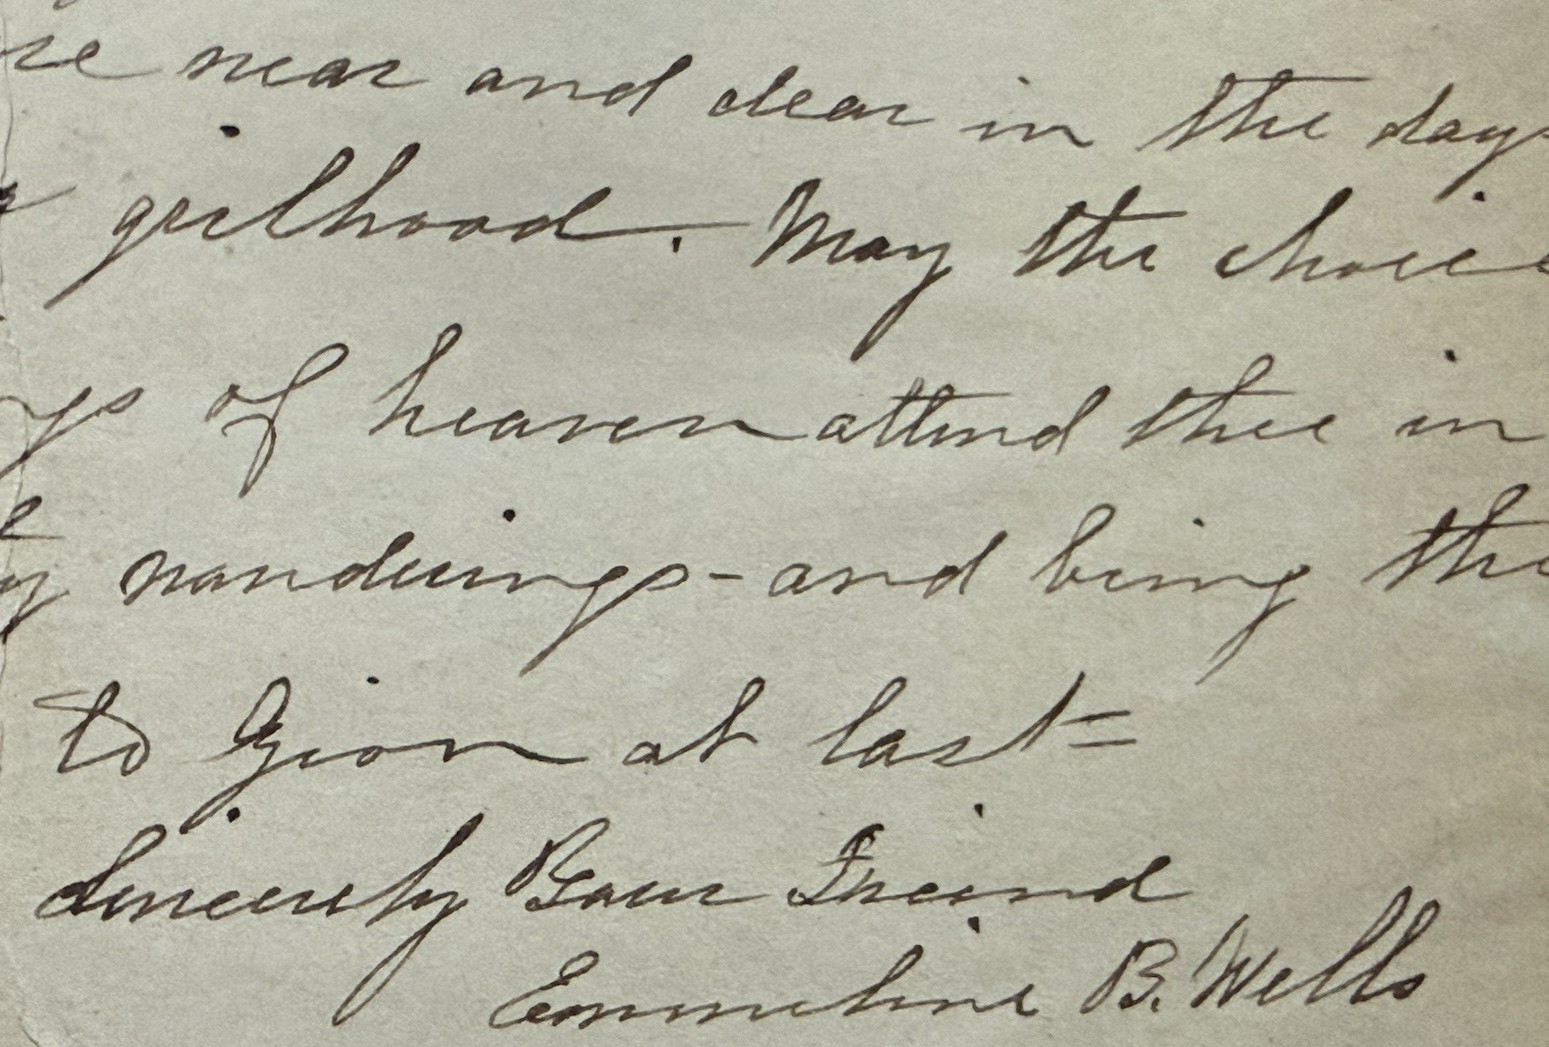 re near and dear in the days
girlhood. May the choice
gs of heaven attend thee in
y wanderings - and bring the
to Zion at last =
Sincerely Your Friend
Emmeline B. Wells